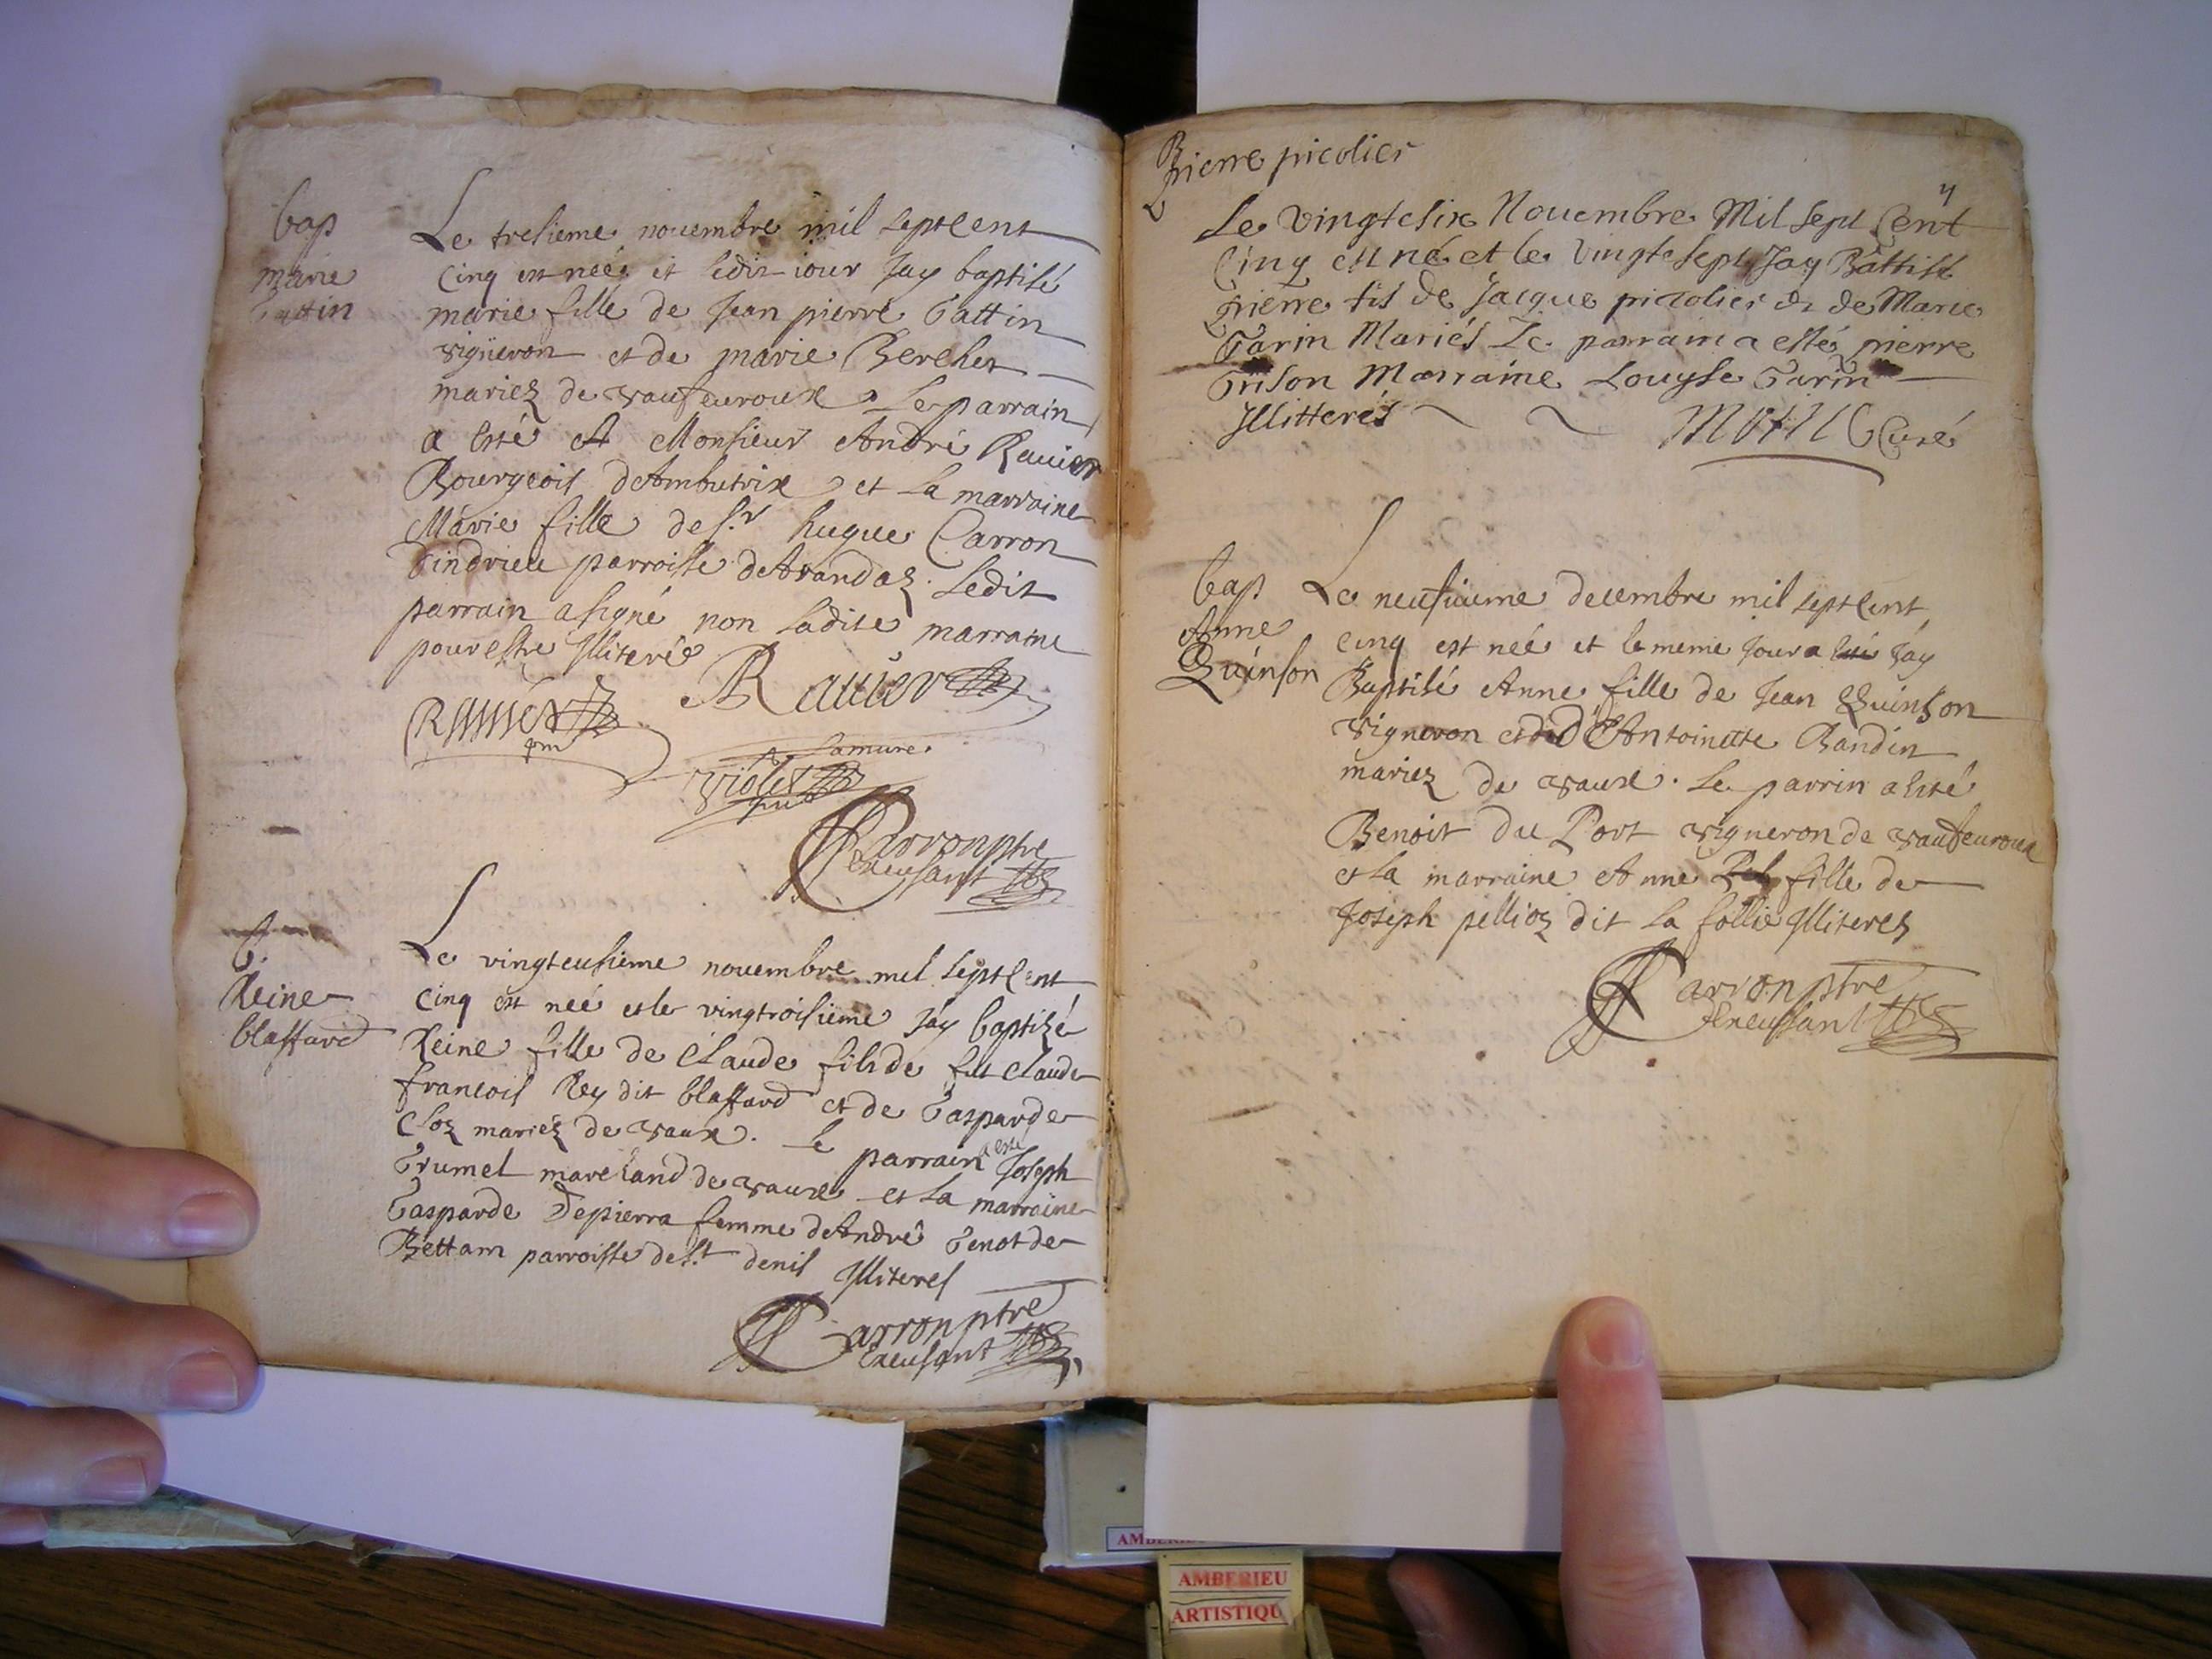 bap
marie
Gattin
Le tresieme nouembre mil septcent
cinq est neé et ledit iour Jay baptisé
marie fille de Jean pierre Gattin
vigneron et de marie Berchet
mariez de vaufeuroux. Le parrain
a esté Monsieur André Rauier
Bourgeois d'Ambutrix et la marraine
Marie fille de s.r hugue Carron
d'indrieu parroisse d'Arandaz. Ledit
parrain a signé non ladite marraine
pour estre Illiterée
Rauier
Lamure
Violet
Carron ptre
excusant
b.
Reine
blaffard
Le vingteusieme nouembre mil septcent
cinq est neé et le vingtroisieme Jáy baptizé
Reine fille de Claude fils de fut claude
francois Rey dit blaffard et de Gasparde
Cloz mariéz de vaux. Le parrain a esté Joseph
Grumel marchand de vaux et la marraine
Gasparde Depierra femme d'André Genot de
Bettam parroisse de s.t denis Illiteres
Carron ptre
excusant
B
pierre picolier
Le vingtesix Nouembre Mil sept Cent
Cinq est né et le vingtesept Jay Battisé
pierre fis de Jacque picolier & de Marie
Garin Mariés Le parrain a esté pierre
Grison Marraine Louyse Garin
Illitterés
Curé
bap
Anne
Quinson
Le neufuieme decembre mil septcent
cinq est neé et le meme Jour Jáy
Baptisé Anne fille de Jean Quinson
vigneron et d'Antoinette Bandin
mariez de vaux. Le parrin a esté
Benoit du Port vigneron de vaufeuroux
et la marraine Anne fille de
Joseph pellioz dit la follie Illiterez
Carron ptre
excusant
AMBERIEU
ARTISTIQU